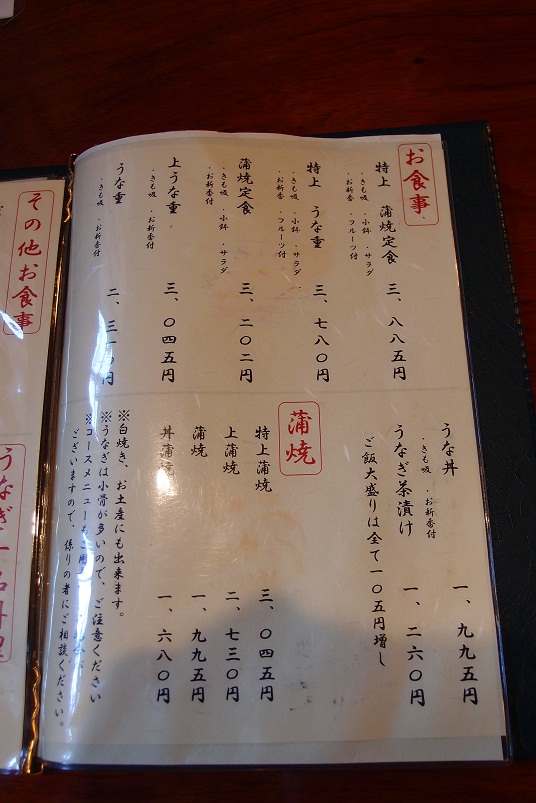 お食事
特上 蒲焼定食 三、八八五円
・きも吸 ・小鉢 ・サラダ
・お新香 ・フルーツ付
特上 うな重 三、七八〇円
・きも吸 ・小鉢 ・サラダ
・お新香 ・フルーツ付
蒲焼定食 三、二〇二円
・きも吸 ・小鉢 ・サラダ
・お新香付
上うな重 三、〇四五円
・きも吸 ・お新香付
うな重 二、三一〇円
・きも吸 ・お新香付
うな丼 一、九九五円
・きも吸 ・お新香付
うなぎ茶漬け 一、二六〇円
ご飯大盛りは全て一〇五円増し
蒲焼
特上蒲焼 三、〇四五円
上蒲焼 二、七三〇円
蒲焼 一、九九五円
丼蒲焼 一、六八〇円
※白焼き、お土産にも出来ます。
※うなぎは小骨が多いので、ご注意ください
※コースメニューも
ございますので、係りの者にご相談ください。
その他お食事
うなぎ一品料理